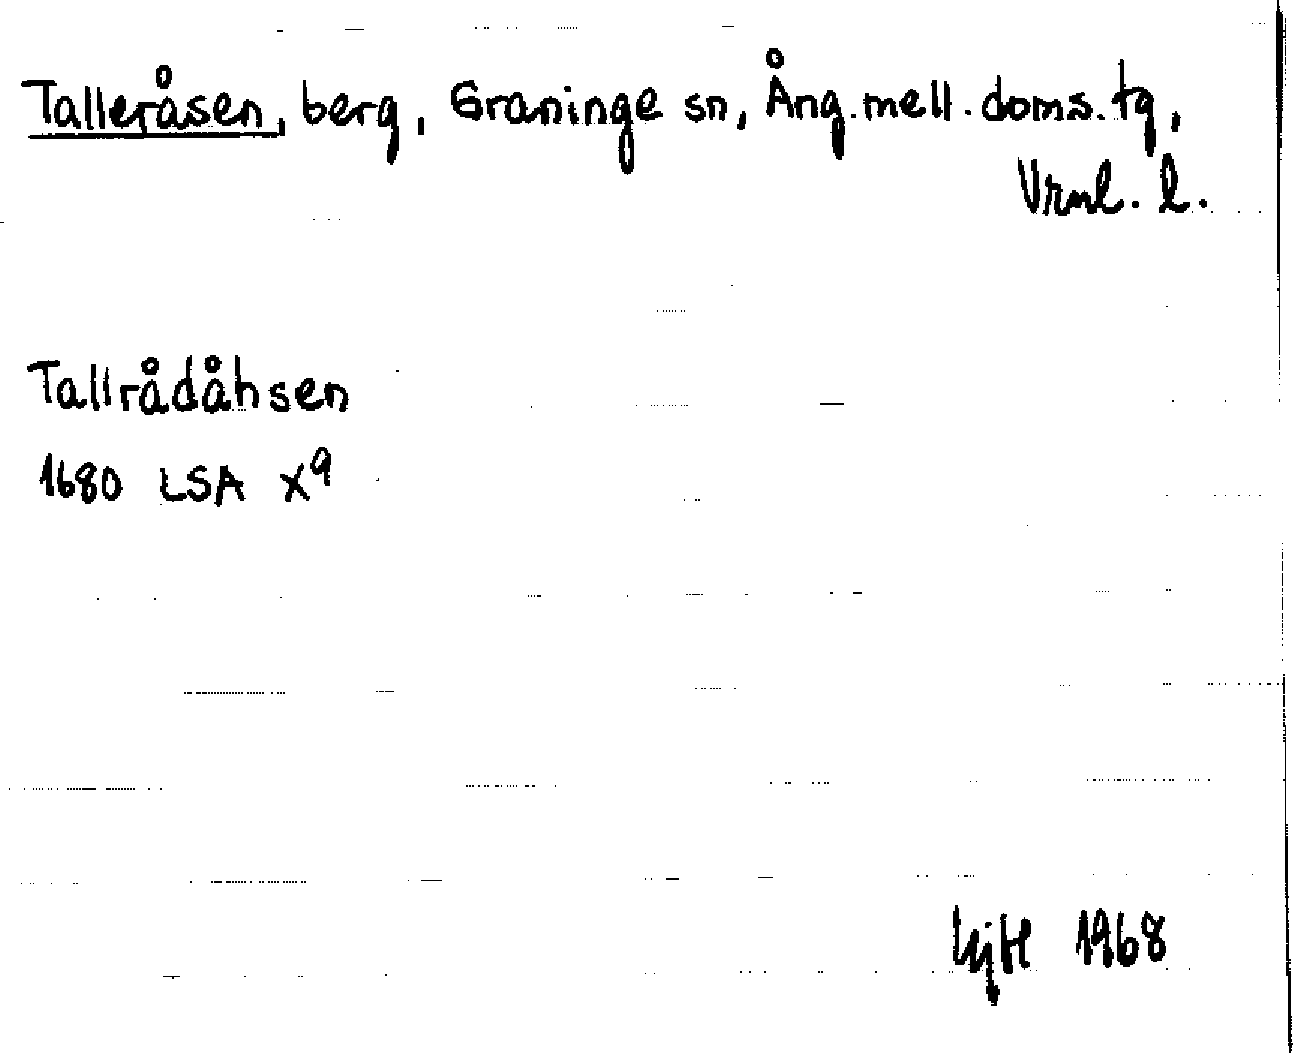 Talleråsen, berg, Graninge sn, Ång. mell. doms. tg,
Vrnl. l.
Tallrådåhsen
1680 LSA X9
1968